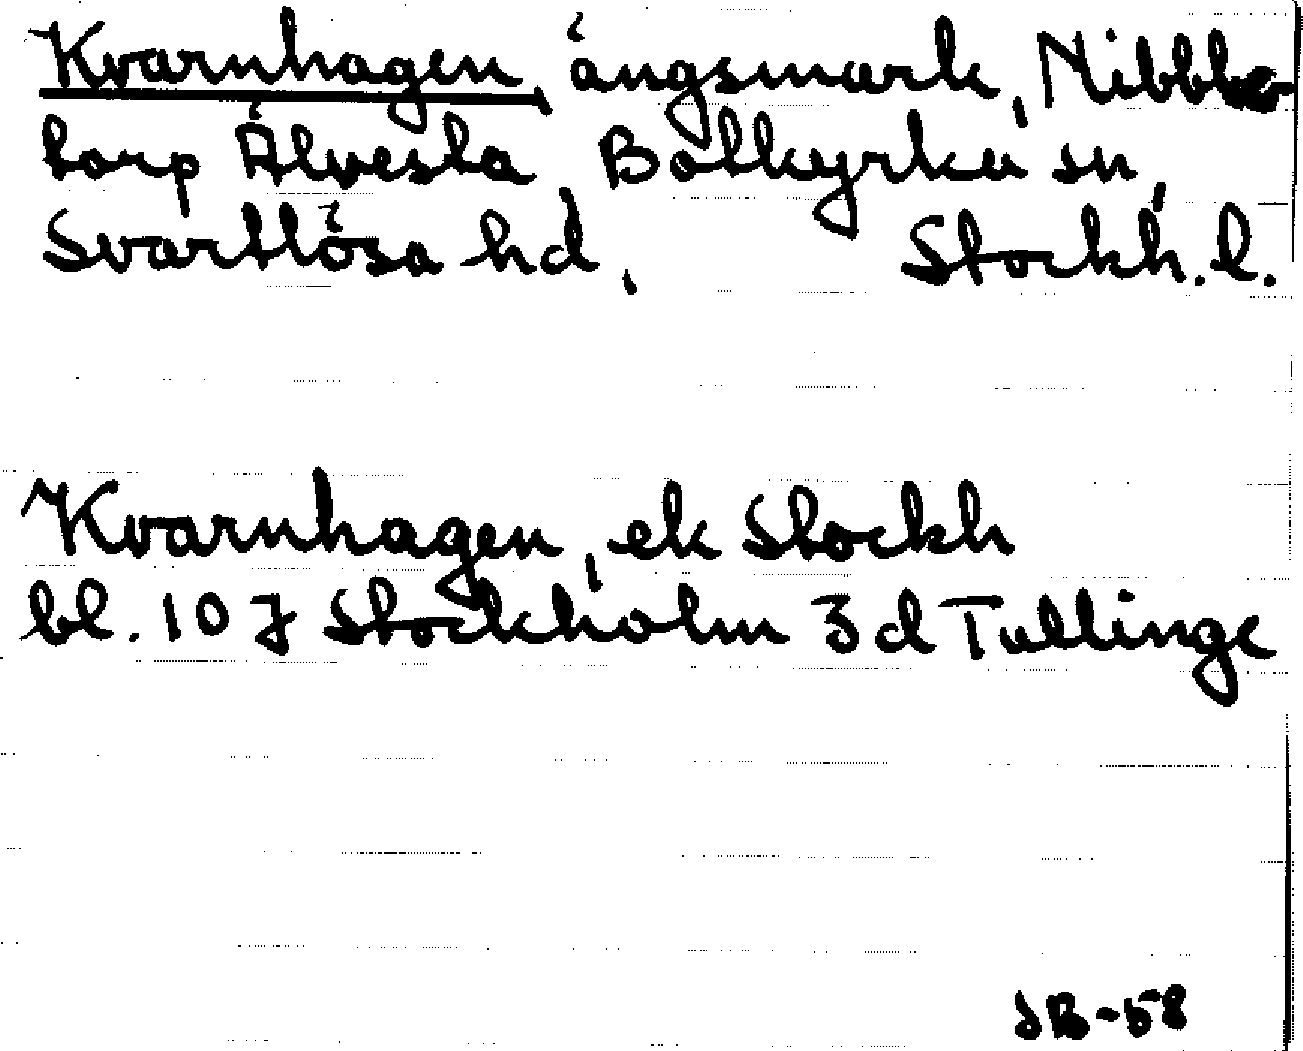 Kvarnhagen, ängsmark, Nibble-
torp Älvesta, Botkyrka sn,
Svartlösa hd, Stockh. l.
Kvarnhagen, ek Stockh
bl. 10 J Stockholm 3 d Tullinge
JB-58